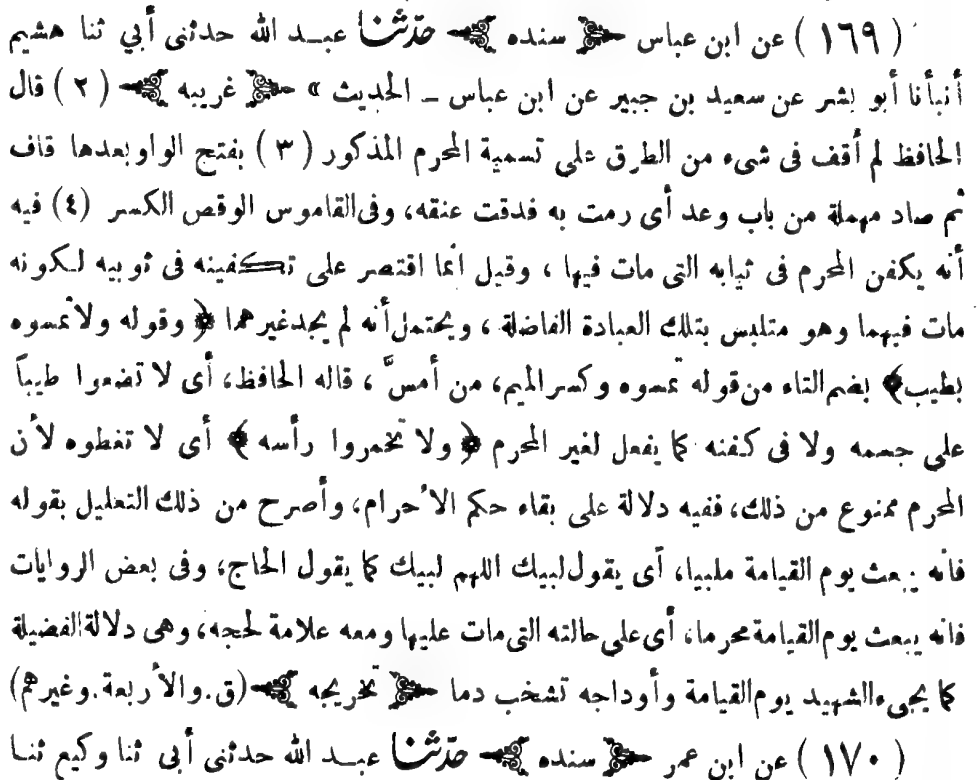 ( ١٦٩ ) عن ابن عباس ﴿ سنده ﴾ حدثنا عبـد الله حدثنى أبي ثنا هشيم
أنبأنا أبو بشر عن سعيد بن جبير عن ابن عباس ــ الحديث » ﴿ غريبه ﴾ ( ٢ ) قال
الحافظ لم أقف فى شىء من الطرق على تسمية المحرم المذكور ( ٣ ) بفتح الواو بعدها قاف
ثم صاد مهملة من باب وعد أى رمت به فدقت عنقه، وفى القاموس الوقص الكسر (٤) فيه
أنه يكفن المحرم فى ثيابه التى مات فيها ، وقيل انما اقتصر على تكفينه فى ثوبيه لكونه
مات فيهما وهو متلبس بتلك العبادة الفاضلة ، ويحتمل أنه لم يجد غيرهما ﴿ وقوله ولا تمسوه
بطيب ﴾ بضم التاء من قوله تمسوه وكسر الميم، من أمسَّ ، قاله الحافظ، أى لا تضعوا طيباً
على جسمه ولا فى كفنه كما يفعل لغير المحرم ﴿ ولا تخمروا رأسه ﴾ أى لا تغطوه لأن
المحرم ممنوع من ذلك، ففيه دلالة على بقاء حكم الأحرام، وأصرح من ذلك التعليل بقوله
فانه يبعث يوم القيامة ملبيا، أى يقول لبيك اللهم لبيك كما يقول الحاج، وفى بعض الروايات
فانه يبعث يوم القيامة محرما، أى على حالته التى مات عليها ومعه علامة لحجه، وهى دلالة الفضيلة
كما يجىء الشهيد يوم القيامة وأوداجه تشخب دما ﴿ تخريجه ﴾ (ق. والأربعة. وغيرهم)
( ١٧٠ ) عن ابن عمر ﴿ سنده ﴾ حدثنا عبـد الله حدثنى أبى ثنا وكيع ثنـا